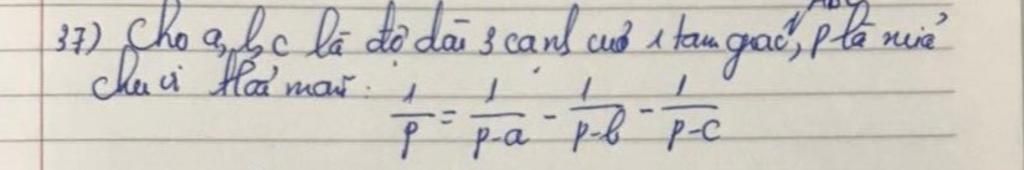 37) Cho a, b, c là độ dài 3 cạnh của 1 tam giác, p là nửa
chu vi thoả mãn: 1/p = 1/(p-a) - 1/(p-b) - 1/(p-c)